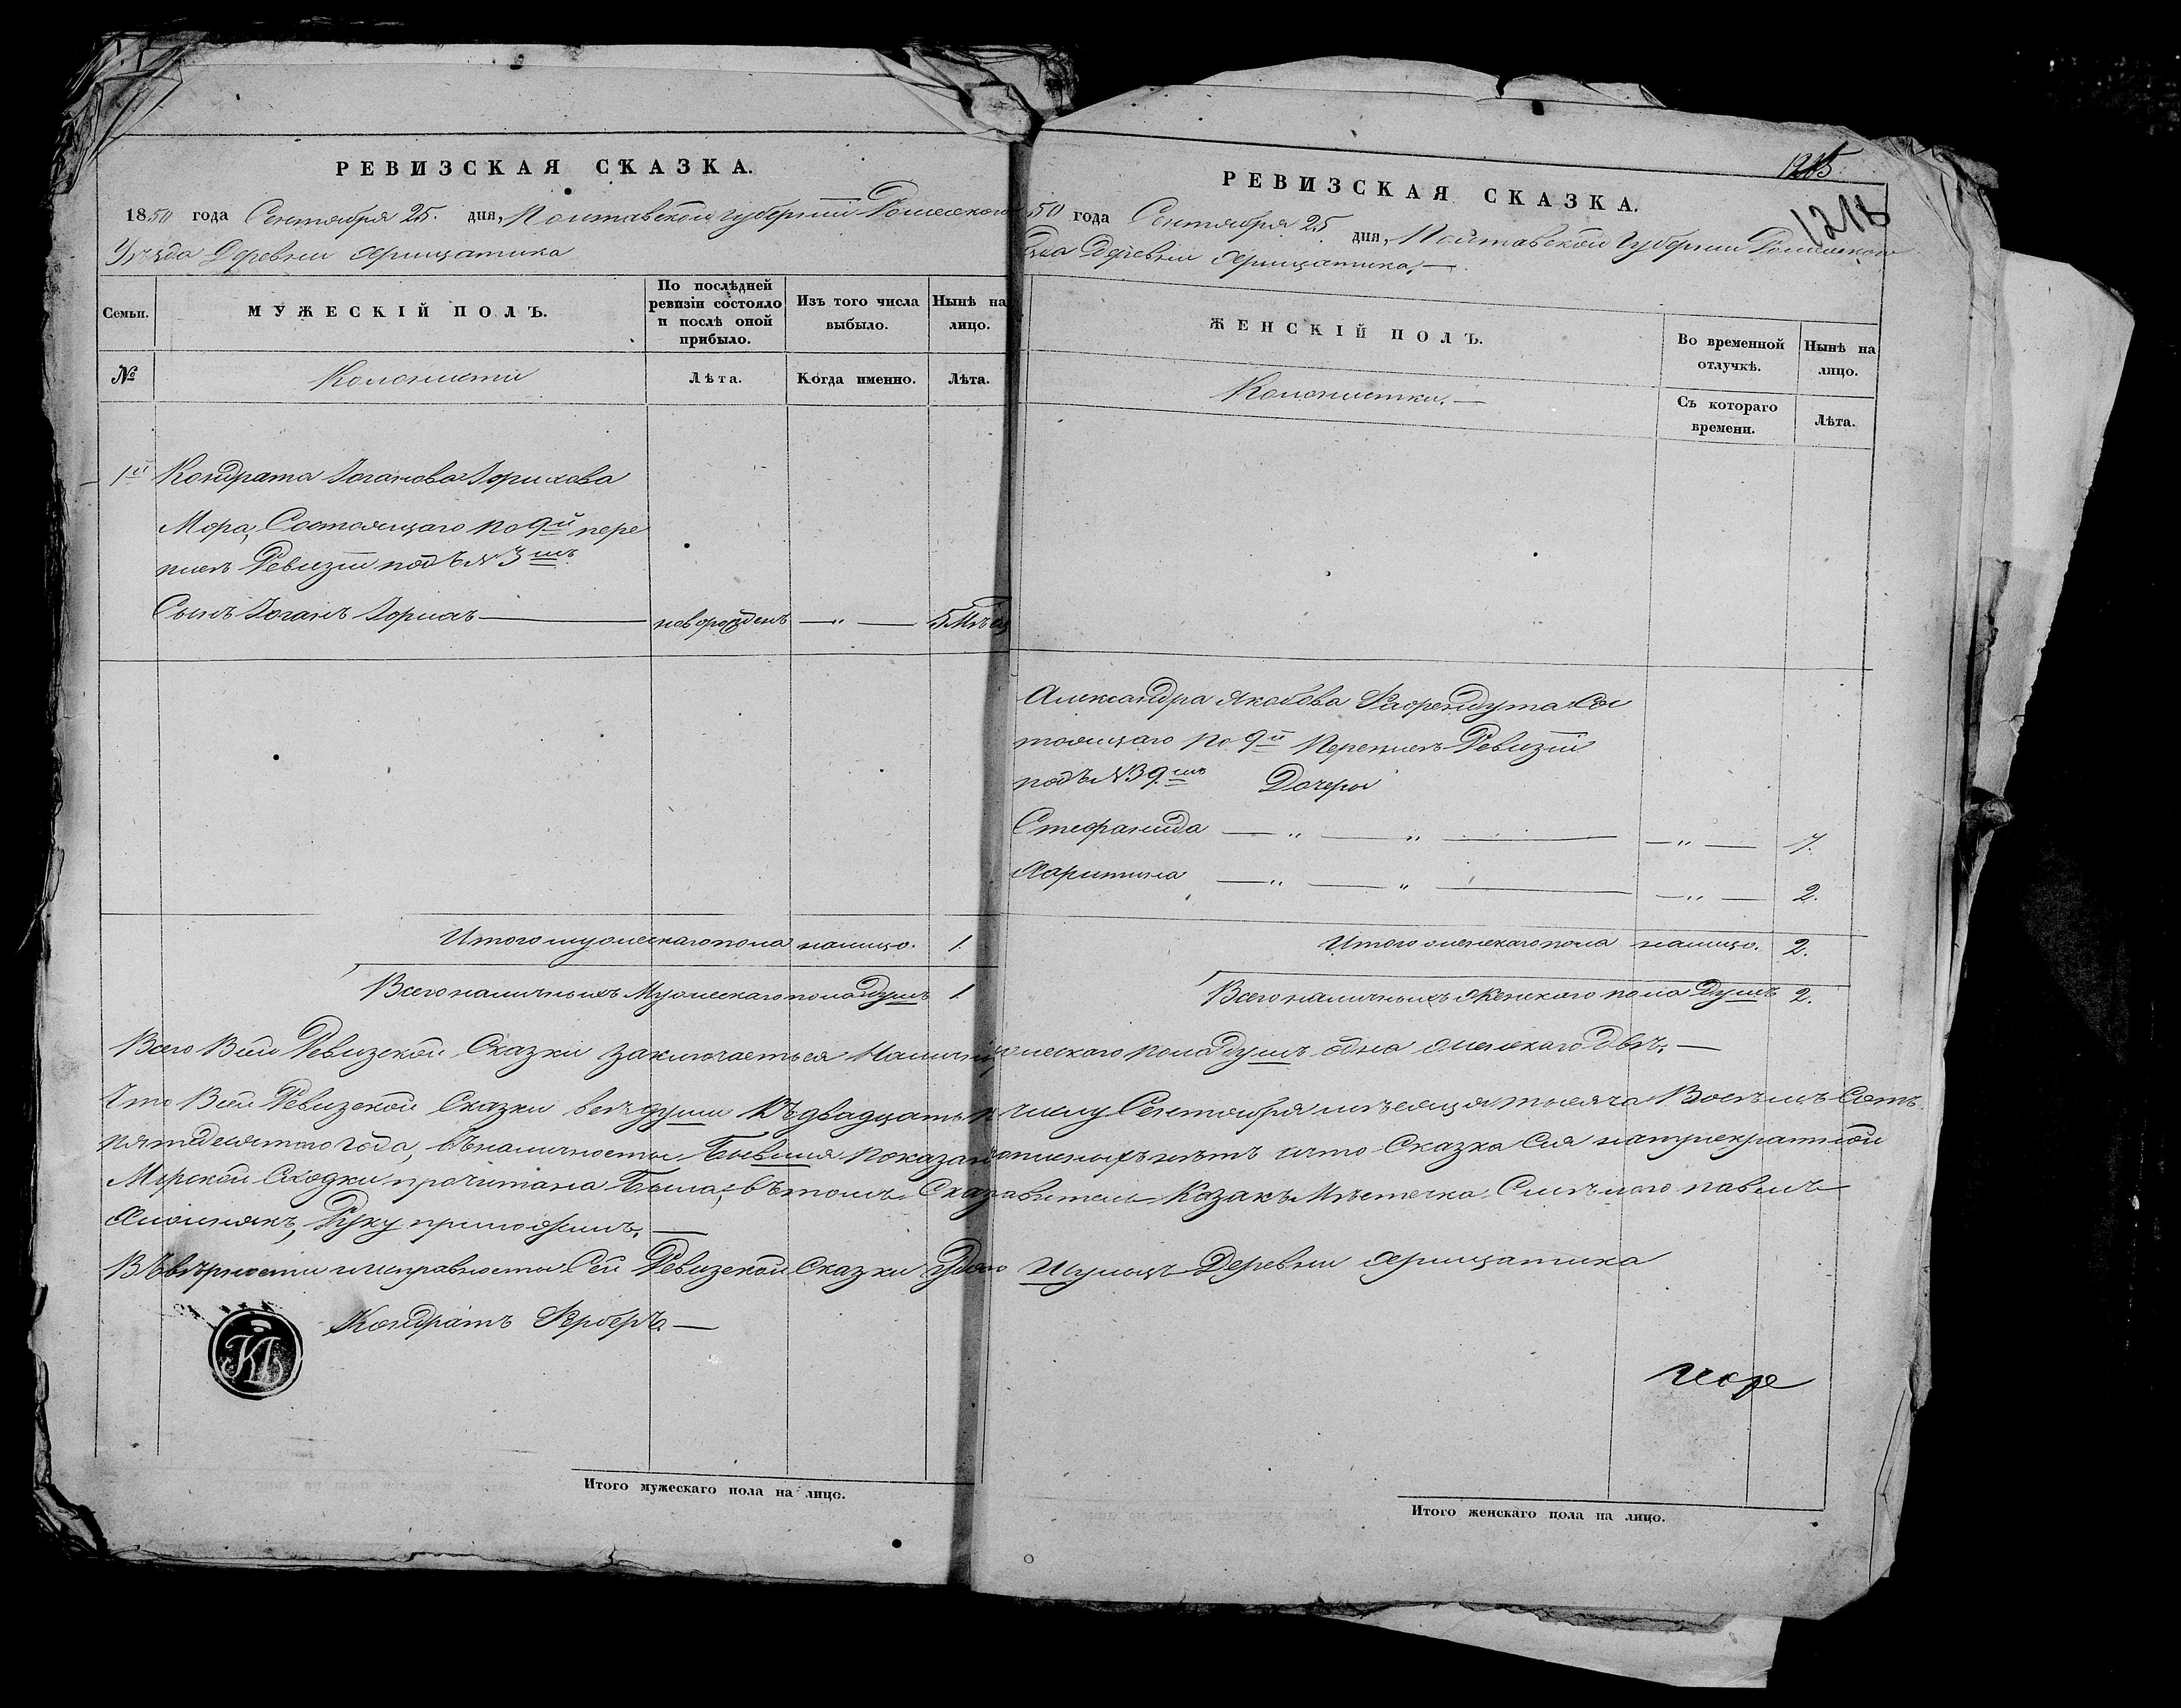 РЕВИЗСКАЯ СКАЗКА.
1850 года Сентября 25. дня, Полтавской губерніи Роменского
Уѣзда Деревни
Семьи.
МУЖЕСКІЙ ПОЛЪ.
По послѣдней ревизіи состояло и послѣ оной прибыло.
Изъ того числа выбыло.
Нынѣ на лицо.
№
Колонисти
Лѣта.
Когда именно.
Лѣта.
1й Кондрата Іоганова Іорихова
Мора, Состоящаго по 9й пере
писѣ Ревизіи подъ № 3мъ
Сынъ Іоганъ Іорихъ — новорожденъ — " — 5 Мѣсяц
Итого мужескаго пола налицо. 1.
Всего наличныхъ Мужескаго пола душъ 1.
РЕВИЗСКАЯ СКАЗКА.
1215
121
50 года Сентября 25 дня, Полтавской Губерніи Роменского
Деревни
ЖЕНСКІЙ ПОЛЪ.
Во временной отлучкѣ.
Нынѣ на лицо.
Колонистки. —
Съ котораго времени.
Лѣта.
Александра Якобова Сос
тоящаго по 9й Переписѣ Ревизіи
подъ № 39мъ Дочеры
Стефанида — " — " — — " — 7.
Харитина — " — " — — " — 2.
Итого женскаго пола налицо. 2.
Всего наличныхъ Женскаго пола Душъ 2.
Всего Всей Ревизской Сказки заключаеться Налични ужескаго пола душъ одна женскаго двѣ. —
Что Всей Ревизской Сказки всѣ души Къ двадцать п числу Сентября мѣсяца тысяча Восѣмъ Сотъ
пятдесятого года, въ наличности Бывшия показан описныхъ нѣтъ и что Сказка Сия на трекратной
Мирской Сходки прочитана Была, въ томъ Сказ Козакъ Мѣстечка Смѣлого Павелъ
Руку приложилъ. —
Въ вѣрности и исправности Сей Ревизской Сказки Деревни
Кондратъ —
КГ
Итого мужескаго пола на лицо.
Итого женскаго пола на лицо.